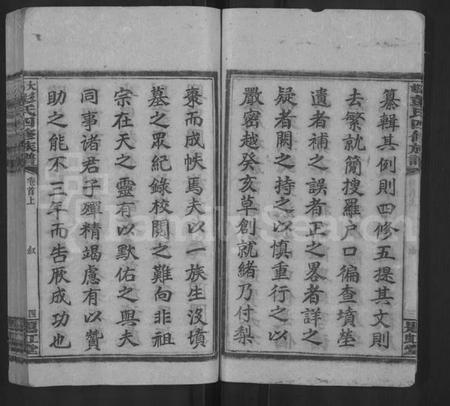 纂輯其例則四修五提其文則
去繁就簡搜羅戶口徧查墳塋
遺者補之誤者正之畧者詳之
疑者闕之持之以慎重行之以
嚴密越癸亥草創就緒乃付梨
棗而成帙焉夫以一族生沒墳
墓之眾紀錄校閱之難向非祖
宗在天之靈有以默佑之與夫
同事諸君子殫精竭慮有以贊
助之能不三年而告厥成功也
彭氏四修族譜
卷首上
叙
四